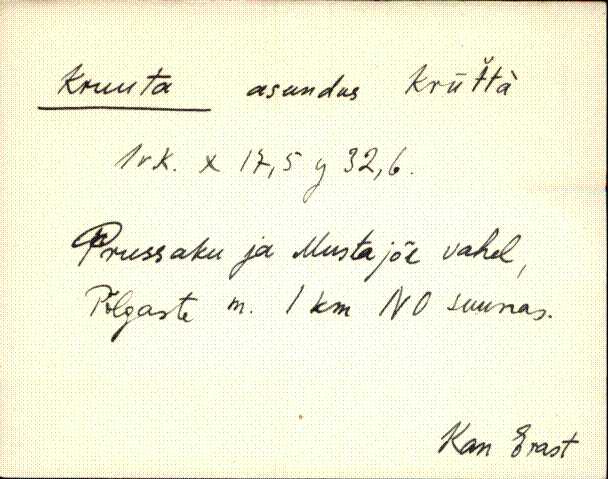 Kruuta asundus Krūt̆tà
1 v.k. x 17,5 y 32,6.
Prussaku ja Mustajõe vahel,
Põlgaste m. 1 km NO suunas.
Kan Erast